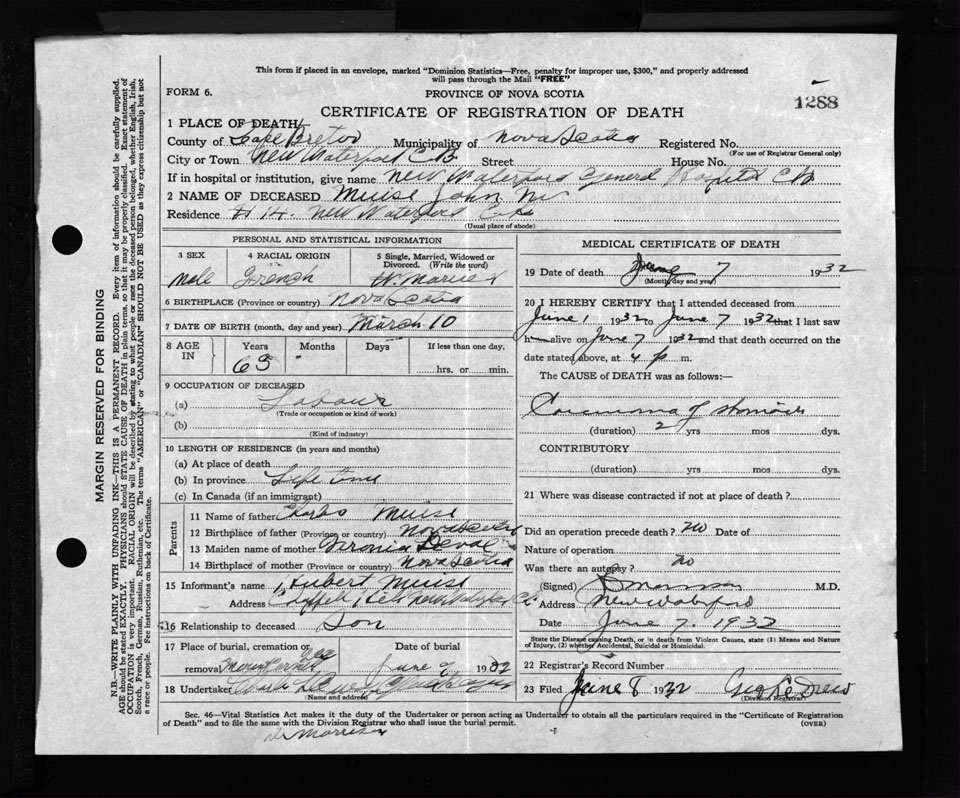 This form if placed in an envelope, marked "Dominion Statistics—Free, penalty for improper use, $300," and properly addressed
will pass through the Mail "FREE"
FORM 6.
PROVINCE OF NOVA SCOTIA
1288
CERTIFICATE OF REGISTRATION OF DEATH
1 PLACE OF DEATH
County of Cape Breton Municipality of Nova Scotia Registered No.
(For use of Registrar General only)
City or Town New Waterford C.B. Street House No.
If in hospital or institution, give name New Waterford General Hospital C.B.
2 NAME OF DECEASED Muise John
Residence 14. New Waterford
(Usual place of abode)
PERSONAL AND STATISTICAL INFORMATION
3 SEX
male
4 RACIAL ORIGIN
French
5 Single, Married, Widowed or Divorced. (Write the word)
Married
6 BIRTHPLACE (Province or country) Nova Scotia
7 DATE OF BIRTH (month, day and year) March 10
8 AGE IN
Years Months Days If less than one day,
65 hrs. or min.
9 OCCUPATION OF DECEASED
(a) Labour
(Trade or occupation or kind of work)
(b)
(Kind of industry)
10 LENGTH OF RESIDENCE (in years and months)
(a) At place of death
(b) In province Life time
(c) In Canada (if an immigrant)
Parents
11 Name of father Charles Muise
12 Birthplace of father (Province or country) Nova Scotia
13 Maiden name of mother
14 Birthplace of mother (Province or country) Nova Scotia
15 Informant's name Hubert Muise
Address New Waterford
16 Relationship to deceased Son
17 Place of burial, cremation or removal
Date of burial
June 9 1932
18 Undertaker
(Name and address)
MEDICAL CERTIFICATE OF DEATH
19 Date of death June 7 1932
(Month, day and year)
20 I HEREBY CERTIFY that I attended deceased from
June 1 1932 to June 7 1932 that I last saw
h alive on June 7 1932 and that death occurred on the
date stated above, at 4 p m.
The CAUSE of DEATH was as follows:—
Carcinoma of stomach
(duration) 2 yrs mos dys.
CONTRIBUTORY
(duration) yrs mos dys.
21 Where was disease contracted if not at place of death?
Did an operation precede death? no Date of
Nature of operation
Was there an autopsy? no
(Signed) M.D.
Address New Waterford
Date June 7. 1932
State the Disease causing Death, or in death from Violent Causes, state (1) Means and Nature
of Injury, (2) whether Accidental, Suicidal or Homicidal.
22 Registrar's Record Number
23 Filed June 8 1932 Geo LeDrew
(Division Registrar)
Sec. 46—Vital Statistics Act makes it the duty of the Undertaker or person acting as Undertaker to obtain all the particulars required in the "Certificate of Registration
of Death" and to file the same with the Division Registrar who shall issue the burial permit.
(OVER)
Dr Morrison
MARGIN RESERVED FOR BINDING
N.B.—WRITE PLAINLY WITH UNFADING INK—THIS IS A PERMANENT RECORD. Every item of information should be carefully supplied.
AGE should be stated EXACTLY. PHYSICIANS should STATE CAUSE OF DEATH in plain terms, so that it may be properly classified. Exact statement of
OCCUPATION is very important. RACIAL ORIGIN will be described by stating to what people or race the deceased person belonged, whether English, Irish,
Scotch, French, German, Russian, Ruthenian, etc. The terms "AMERICAN" or "CANADIAN" SHOULD NOT BE USED as they express citizenship but not
a race or people. See instructions on back of Certificate.